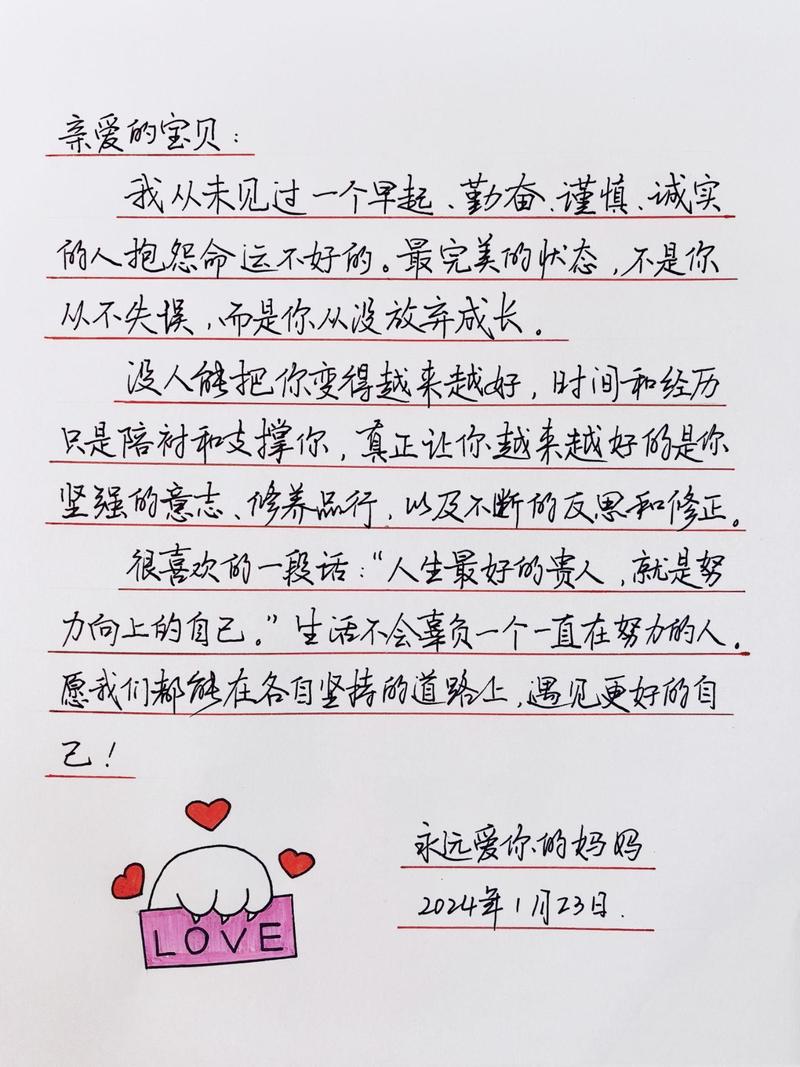 亲爱的宝贝：
我从未见过一个早起、勤奋、谨慎、诚实
的人抱怨命运不好的。最完美的状态，不是你
从不失误，而是你从没放弃成长。
没人能把你变得越来越好，时间和经历
只是陪衬和支撑你，真正让你越来越好的是你
坚强的意志、修养品行，以及不断的反思和修正。
很喜欢的一段话：“人生最好的贵人，就是努
力向上的自己。”生活不会辜负一个一直在努力的人。
愿我们都能在各自坚持的道路上，遇见更好的自
己！
永远爱你的妈妈
2024年1月23日.
LOVE